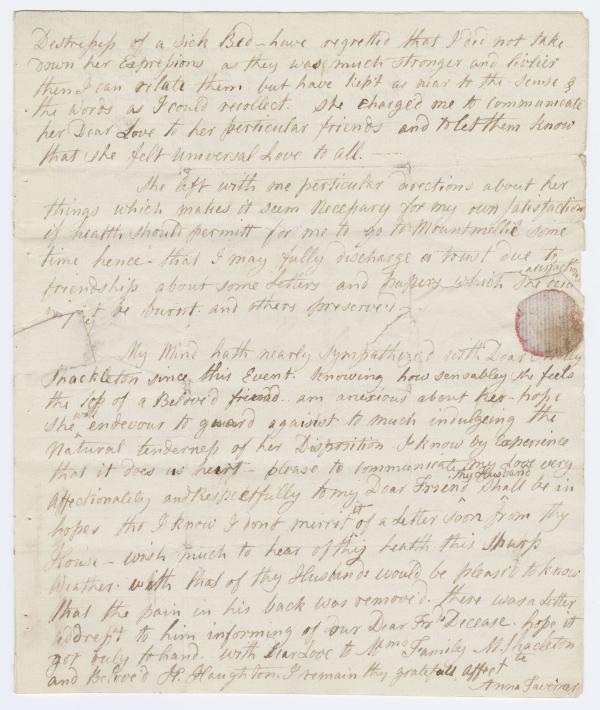 Destressess of a sick Bed - have regretted that I did not take
down her Expressions as they was much stronger and livlier
then I can relate them but have kept as near to the sense &
the words as I could recollect. she charged me to communicate
her Dear Love to her perticular friends and to let them know
that she felt universal Love to all. -
She left with me perticular directions about her
things which makes it seem Necessary for my own satisfaction
if health should permitt for me to go to Mountmellic some
time hence - that I may fully discharge a trust due to
friendship about some Letters and papers which she
be burnt and others preserved -
My Mind hath nearly Sympathized with Dear
Shackleton since this Event. knowing how sensabley she feels
the loss of a Beloved friend. am anxious about her - hope
she will endevour to guard against to much indulgeing the
Natural tenderness of her Disposition I know by Experience
that it does us hurt - please to communicate my Love very
affectionately and Respectfully to my Dear Friend thy Husband Shall be in
hopes tho I know I dont merrit it of a Letter soon from thy
House - wish much to hear of thy health this sharp
Weather. with that of thy Husbands would be pleased to know
that the pain in his back was removed. there was a Letter
addrest to him informing of our Dear Frds Decease. hope it
got duly to hand. with Dear Love to Family M. Shackleton
and Beloved H. Haughton. I remain thy gratefull affecte
Anna